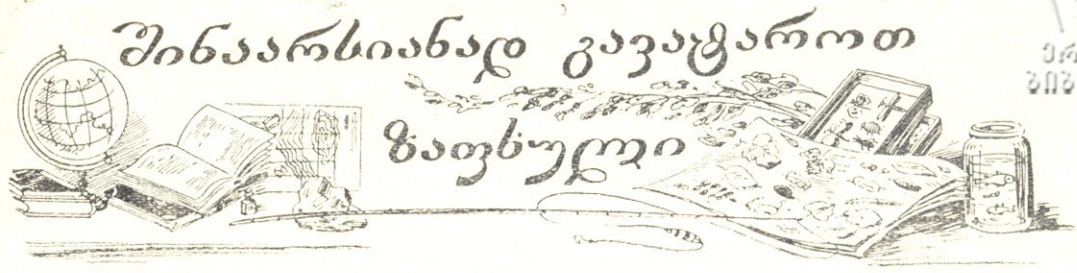 შინაარსიანად გავატაროთ
ზაფხული